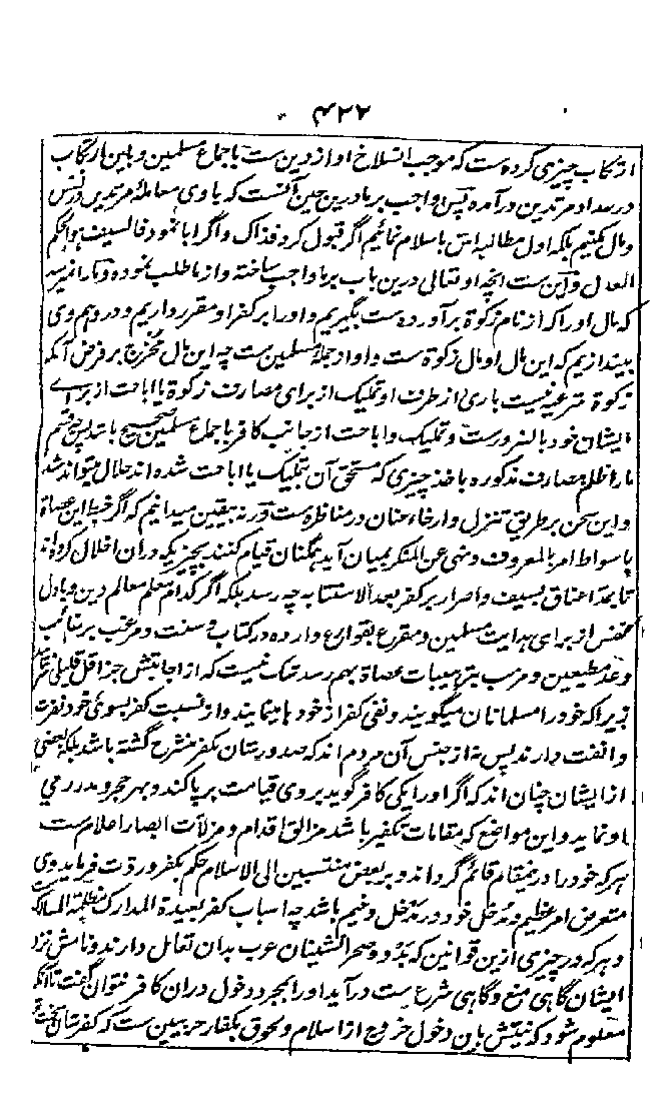 ۴۲۲
ارتکاب چیزی کرده ست که موجب انسلاخ او از دین ست باجماع مسلمین و باین ارتکاب
در سداد مرتدین درآمده پس واجب بر ما درین حین آنست که با وی معاملهٔ مرتدین در نفس
و مال کنیم بلکه اول مطالبه اش باسلام نمائیم اگر قبول کرد فذاک و اگر ابا نمود فالسیف هو الحکم
العدل و این ست انچه او تعالی درین باب بر ما واجب ساخته و از ما طلب نموده و ما را نمیرسد
که مال او را که از نام زکوة برآورده ست بگیریم و او را بر کفر او مقرر داریم و در وهم وی
بیندازیم که این مال او مال زکوة ست و او از جملهٔ مسلمین ست چه این مال مخرج بر فرض آنکه
زکوة شرعیه نیست باری از طرف او تملیک از برای مصارف زکوة یا اباحت از برای
ایشان خود بالضرورست و تملیک و اباحت از جانب کافر باجماع مسلمین صحیح باشد پس
ما را ظلم مصارف مذکوره باخذ چیزی که مستحق آن بتملیک یا اباحت شده اند حلال میتواند شد
و این سخن بر طریق تنزل و ارخاء عنان در مناظره ست ورنه بیقین میدانیم که اگر ضبط این عصاة
باسواط امر بالمعروف و نهی عن المنکر بمیان آید همگنان قیام کنند بچیزیکه در ان اخلال کرده اند
تا بمد اعناق بسیف و اصرار بر کفر بعد الاستتابه چه رسد بلکه اگر کدام معلم معالم دین و باذل
نفس از برای هدایت مسلمین و مقرع بقوارع وارده در کتاب و سنت و مرغب برغائب
وعد مطیعین و مرهب بترهیبات عصاة بهم رسد شک نیست که از اجابتش جز اقل قلیلی
زیرا که خود را مسلمانان میگویند و نفی کفر از خود مینمایند و از نسبت کفر بسوی خود نفرت
و انفت دارند پس نه از جنس آن مردم اند که صدورشان بکفر منشرح گشته باشد بلکه بعضی
از ایشان چنان اند که اگر او را یکی کافر گوید بر وی قیامت بر پا کند و بهر حجر و مدر رمی
او نماید و این مواضع که مقامات تکفیر باشد مزالق اقدام و مزلات ابصار اعلام ست
هر که خود را درینمقام قائم گرداند و بر بعض منتسبین الی الاسلام حکم بکفر و ردت فرماید وی
متعرض امر عظیم و مدخل خود در مدخل وخیم باشد چه اسباب کفر بعیدة المدارک مظلمة المسالک
و هر که در چیزی ازین قوانین که بدو و صحرانشینان عرب بدان تعامل دارند و نامش نزد
ایشان گاهی منع و گاهی شرع ست درآید او را بمجرد دخول در ان کافر نتوان گفت تا آنکه
معلوم شود که نیتش بان دخول خروج از اسلام و لحوق بکفار حربیین ست که کفرشان